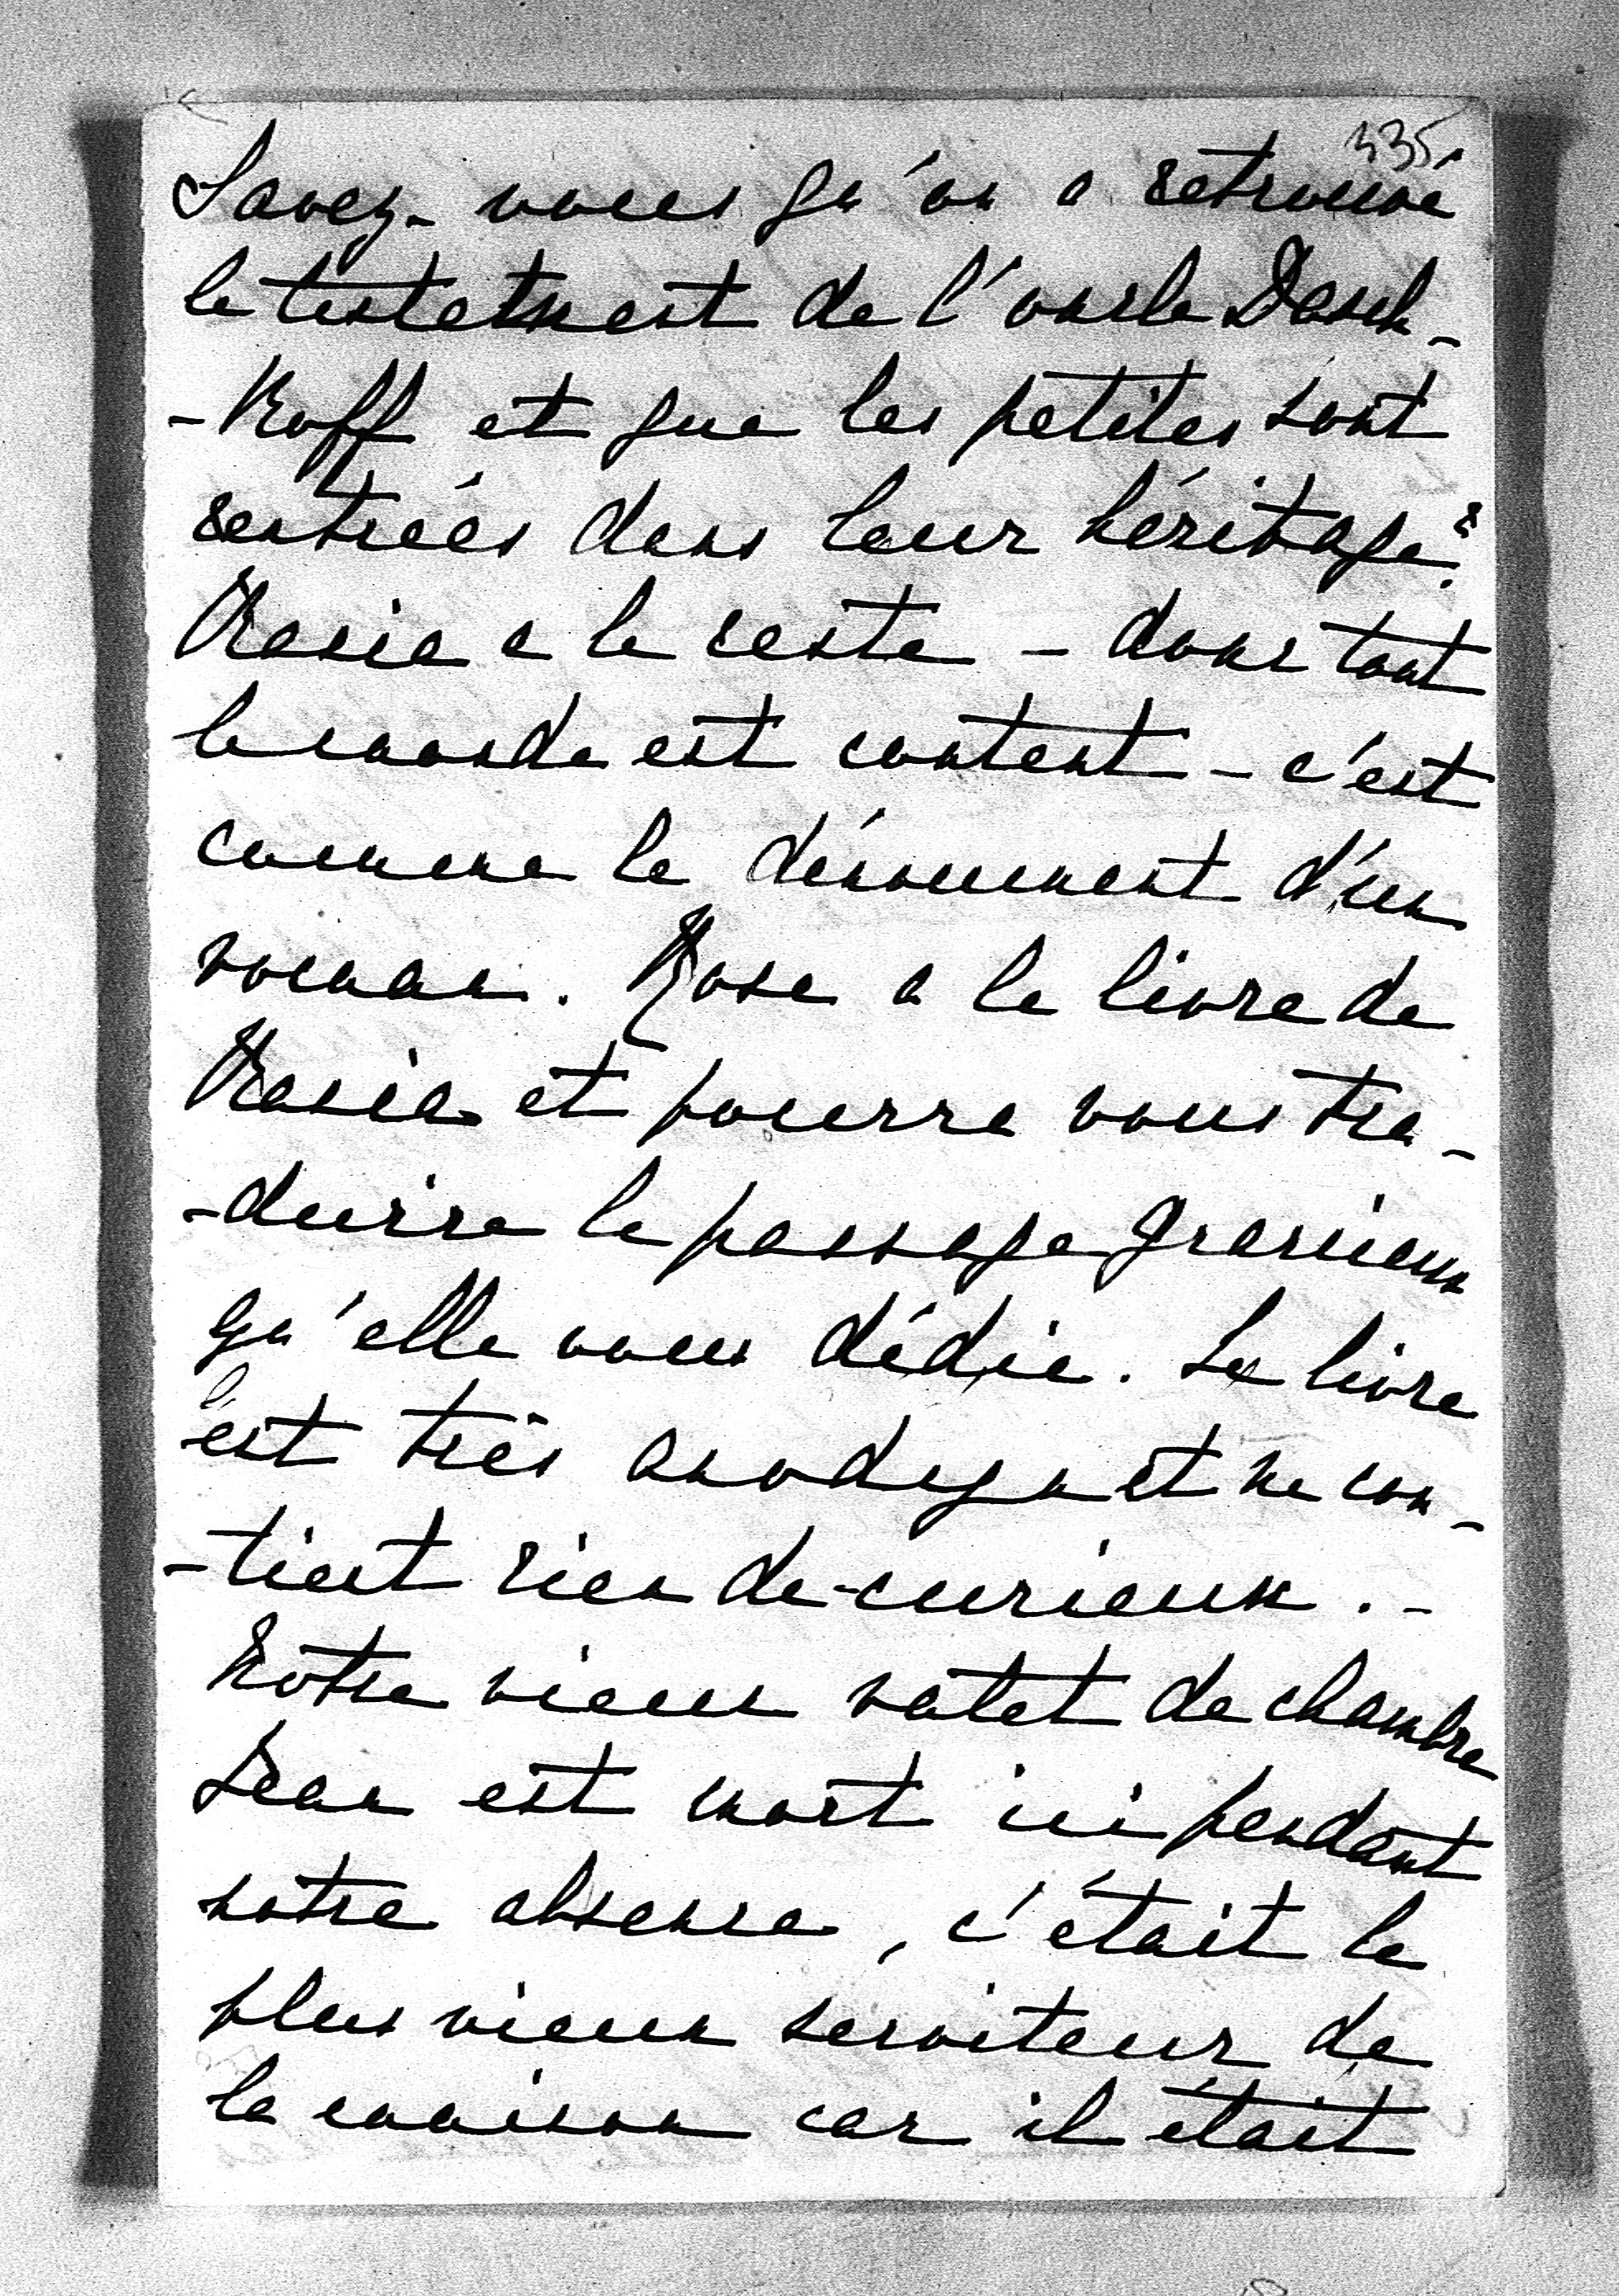 335
Savez-vous qu'on a retrouvé
le testament de l'oncle Dasch-
-Koff et que les petites sont
rentrées dans leur héritage?
Kasia a le reste - donc tout
le monde est content - c'est
comme le dénouement d'un
roman. Rose a le livre de
Kasia et pourra vous tra-
-duire le passage gracieux
qu'elle vous dédie. Le livre
est très anodyn et ne con-
-tient rien de curieux.-
Notre vieux valet de chambre
Jean est mort ici pendant
notre absence, c'était le
plus vieux serviteur de
la maison car il était